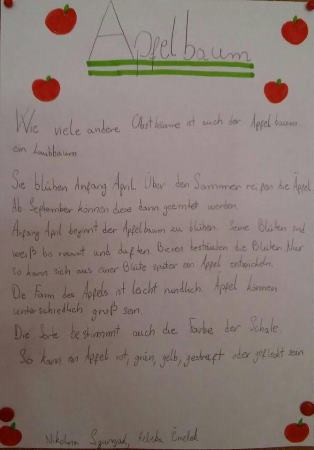 Apfelbaum
Wie viele andere Obstbäume ist auch der Apfelbaum
ein Laubbaum.
Sie blühen Anfang April. Über den Sommer reifen die Äpfel.
Ab September können diese dann geerntet werden.
Anfang April beginnt der Apfelbaum zu blühen. Seine Blüten sind
weiß bis rosarot und duften. Bienen bestäuben die Blüten. Nur
so kann sich aus einer Blüte später ein Apfel entwickeln.
Die Form des Apfels ist leicht rundlich. Äpfel können
unterschiedlich groß sein.
Die Sorte bestimmt auch die Farbe der Schale.
So kann ein Apfel rot, grün, gelb, gestreift oder gefleckt sein.
Nikolina